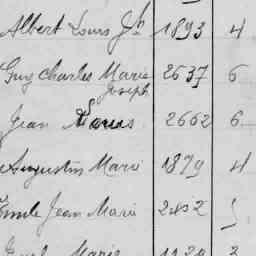 Albert Louis Jh 1893 4
Guy Charles Marie 2637 6
Joseph
Jean 2662 6
Augustin Marie 1879 4
Emile Jean Marie 5
Marie